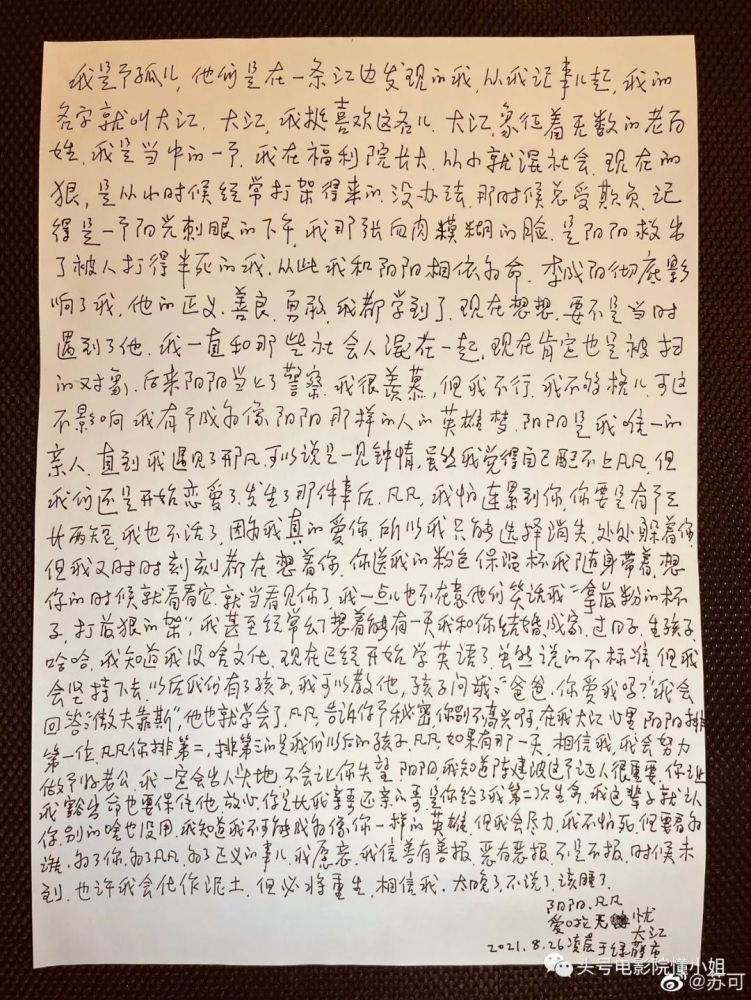 我是个孤儿，他们是在一条江边发现的我，从我记事儿起，我的
名字就叫大江．大江，我挺喜欢这名儿．大江，象征着无数的老百
姓．我是当中的一个．我在福利院长大．从小就混社会．现在的
狠，是从小时候经常打架得来的．没办法．那时候总受欺负．记
得是一个阳光刺眼的下午，我那张血肉模糊的脸．是阳阳救出
了被人打得半死的我．从此我和阳阳相依为命．李成阳彻底影
响了我，他的正义．善良．勇敢，我都学到了．现在想想．要不是当时
遇到了他．我一直和那些社会人混在一起，现在肯定也是被扫
的对象．后来阳阳当上了警察．我很羡慕，但我不行．我不够格儿．可这
不影响我有个成为像阳阳那样的人的英雄梦．阳阳是我唯一的
亲人．直到我遇见了邢凡．可以说是一见钟情．虽然我觉得自己配不上凡凡．但
我们还是开始恋爱了．发生了那件事后．凡凡，我怕连累到你，你要是有个三
长两短，我也不活了，因为我真的爱你．所以我只能选择消失．处处躲着你
但我又时时刻刻都在想着你．你送我的粉色保温杯我随身带着，想
你的时候就看看它．就当看见你了．我一点儿也不在意他们笑话我"拿最粉的杯
子，打最狠的架"．我甚至经常幻想着能有一天我和你结婚．成家．过日子．生孩子
哈哈．我知道我没啥文化．现在已经开始学英语了．虽然说的不标准．但我
会坚持下去．以后我们有了孩子．我可以教他，孩子问我："爸爸．你爱我吗？"我会
回答："微夫靠斯"，他也就学会了．凡凡．告诉你个秘密，你别不高兴啊．在我大江心里．阳阳排
第一位．凡凡你排第二，排第三的是我们以后的孩子．凡凡．如果有那一天．相信我．我会努力
做个好老公．我一定会出人头地．不会让你失望．阳阳．我知道陈建波这个证人很重要．你让
我豁出命也要保住他．放心．你是比我亲哥还亲的哥．是你给了我第二次生命．我这辈子就认
你．别的啥也没用．我知道我不可能成为像你一样的英雄．但我会尽力．我不怕死．但要看为
谁．为了你．为了凡凡．为了正义的事儿．我愿意．我信善有善报．恶有恶报．不是不报．时候未
到．也许我会化作泥土．但必将重生．相信我．太晚了．不说了．该睡了．
阳阳．凡凡
爱 无 忧
大江
2021.8.26凌晨于绿藤市
头号电影院懂小姐
@苏可